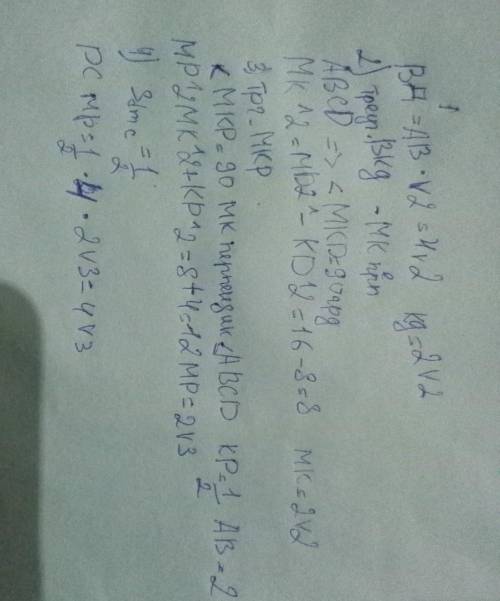 1
ВД = АВ · √2 = 4√2 КД = 2√2
2) треуг. ВКД - МК перп
ABCD => < MKD = 90 град
MK^2 = MD2^ - KD^2 = 16 - 8 = 8 MK = 2√2
3) Тр? - МКР
< MKP = 90 MK перпендик < ABCD KP = 1/2 AB = 2
MP^2 = MK^2 + KP^2 = 8 + 4 = 12 MP = 2√3
4) Sdmc = 1/2
DC MP = 1/2 · 4 · 2√3 = 4√3